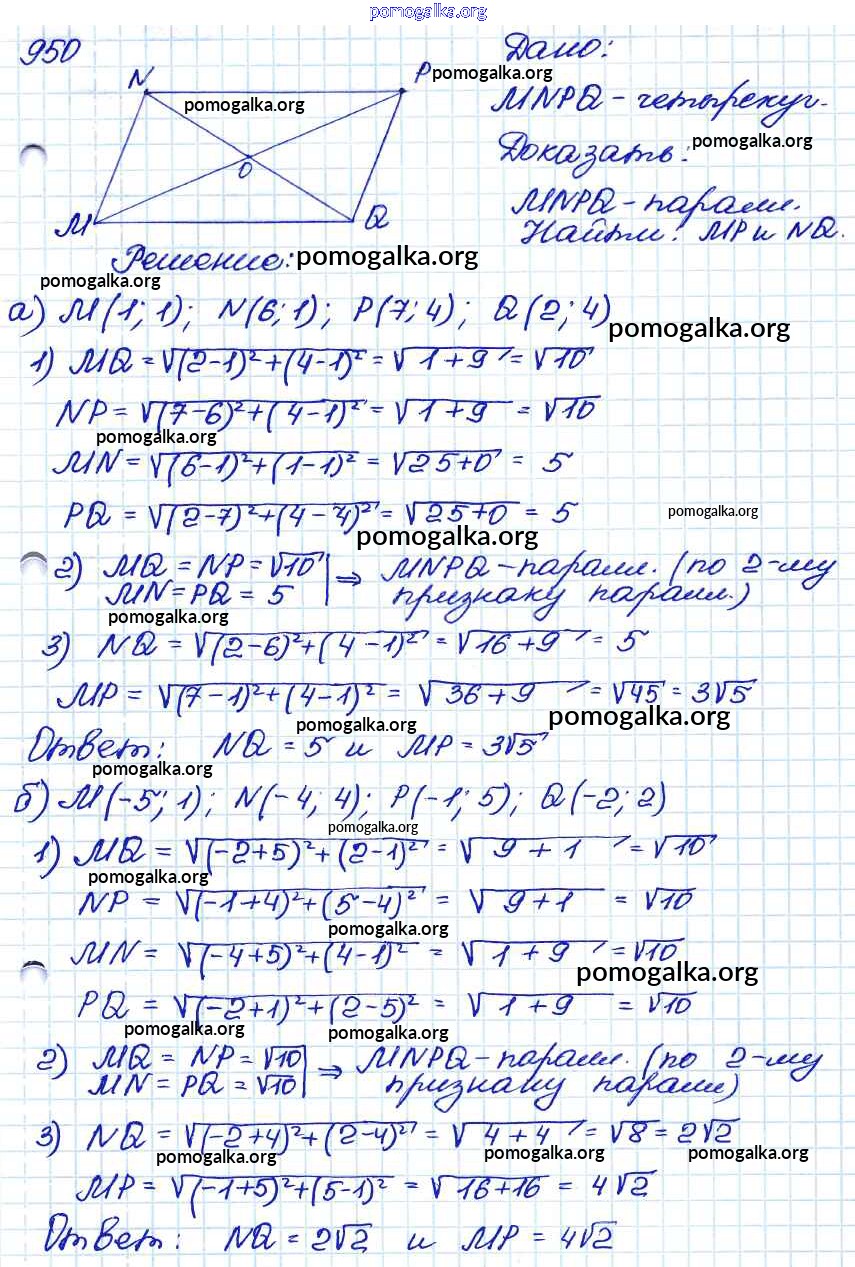 pomogalka.org
950
Дано:
N
P
pomogalka.org
pomogalka.org
MNPQ - четырехуг.
Доказать:
pomogalka.org
O
MNPQ - парал.
M
Q
Найти: MP и NQ.
Решение: pomogalka.org
pomogalka.org
а) M(1; 1); N(6; 1); P(7; 4); Q(2; 4)
pomogalka.org
1) MQ = √(2-1)²+(4-1)² = √1+9 = √10
NP = √(7-6)²+(4-1)² = √1+9 = √10
pomogalka.org
MN = √(6-1)²+(1-1)² = √25+0 = 5
PQ = √(2-7)²+(4-4)² = √25+0 = 5
pomogalka.org
pomogalka.org
2) MQ = NP = √10 | ⇒ MNPQ - парал. (по 2-му
MN = PQ = 5 | признаку парал.)
pomogalka.org
3) NQ = √(2-6)²+(4-1)² = √16+9 = 5
MP = √(7-1)²+(4-1)² = √36+9 = √45 = 3√5
pomogalka.org
pomogalka.org
Ответ: NQ = 5 и MP = 3√5
pomogalka.org
б) M(-5; 1); N(-4; 4); P(-1; 5); Q(-2; 2)
pomogalka.org
1) MQ = √(-2+5)²+(2-1)² = √9+1 = √10
pomogalka.org
NP = √(-1+4)²+(5-4)² = √9+1 = √10
pomogalka.org
MN = √(-4+5)²+(4-1)² = √1+9 = √10
pomogalka.org
PQ = √(-2+1)²+(2-5)² = √1+9 = √10
pomogalka.org
pomogalka.org
2) MQ = NP = √10 | ⇒ MNPQ - парал. (по 2-му
MN = PQ = √10 | признаку парал)
3) NQ = √(-2+4)²+(2-4)² = √4+4 = √8 = 2√2
pomogalka.org
pomogalka.org
pomogalka.org
MP = √(-1+5)²+(5-1)² = √16+16 = 4√2
Ответ: NQ = 2√2 и MP = 4√2